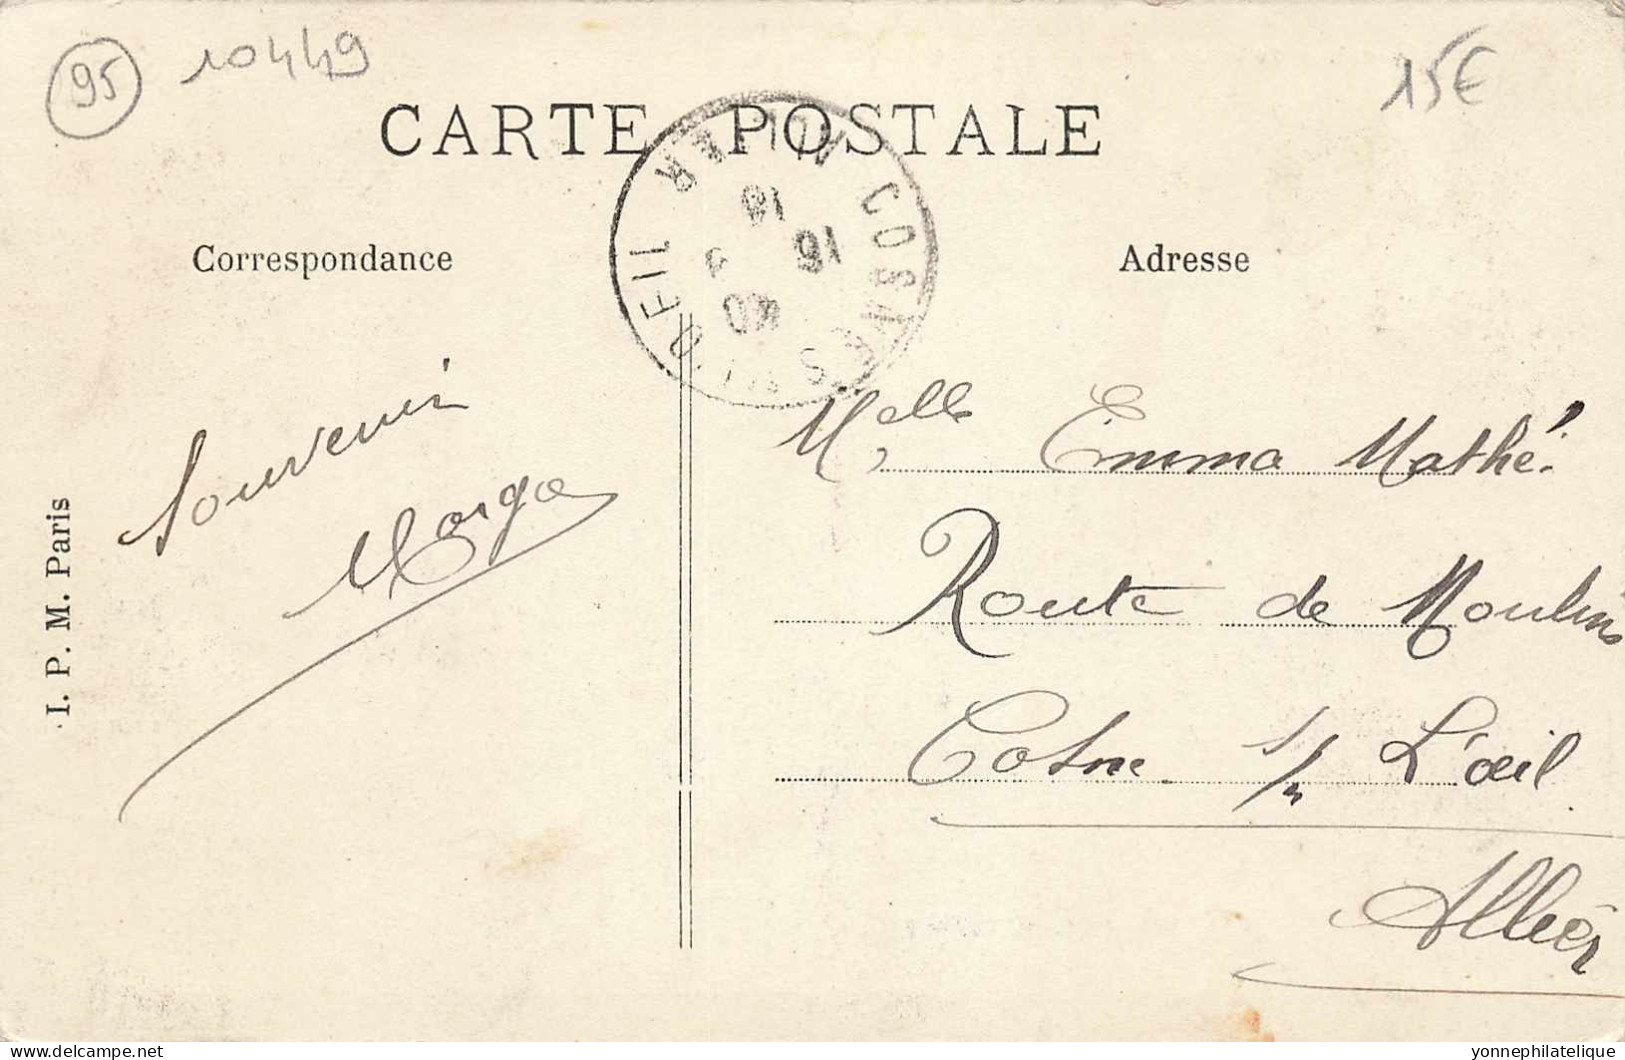 95
10449
15€
CARTE POSTALE
Correspondance
Adresse
COSNE SUR L'OEIL
ALLIER
18
16
Souvenir
Marga
Melle Emma Mathé.
Route de Moulins
Cosne s/r L'œil
Allier
I. P. M. Paris
yonnephilatelique / Delcampe.net